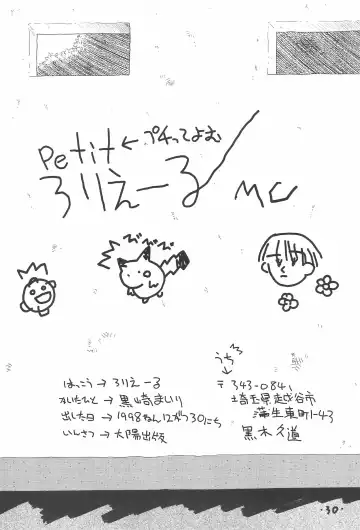 Petit ← プチってよむ
ろりえーる
MC
はっこう → ろりえーる
かいたひと → 黒崎まいり
出した日 → 1998ねん12がつ30にち
いんさつ → 太陽出版
うちら
↓
〒343-0841
埼玉県越谷市
蒲生東町1-43
黒木久道
・30・